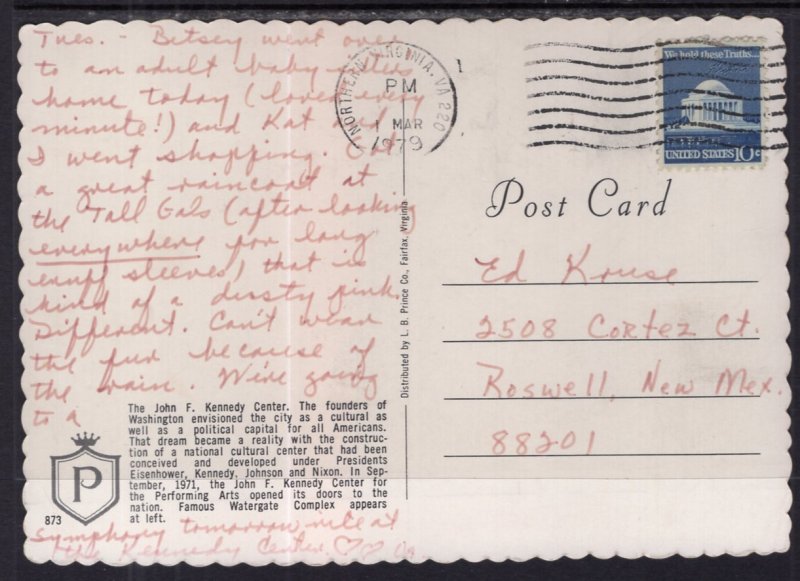 Tues. - Betsey went over
to an adult baby sitters
home today (loved every
minute!) and Kat and
I went shopping. Got
a great raincoat at
the Tall Gals (after looking
everywhere for long
enuff sleeves) that is
kind of a dusty pink.
Different. Can't wear
the fur because of
the rain. We're going
to a
symphony tomorrow nite at
the Kennedy Center. ♡♡
The John F. Kennedy Center. The founders of
Washington envisioned the city as a cultural as
well as a political capital for all Americans.
That dream became a reality with the construc-
tion of a national cultural center that had been
conceived and developed under Presidents
Eisenhower, Kennedy, Johnson and Nixon. In Sep-
tember, 1971, the John F. Kennedy Center for
the Performing Arts opened its doors to the
nation. Famous Watergate Complex appears
at left.
P
873
Distributed by L. B. Prince Co., Fairfax, Virginia
NORTHERN VIRGINIA, VA 220
PM
1 MAR
1979
We hold these Truths...
UNITED STATES 10c
Post Card
Ed Kruse
2508 Cortez Ct.
Roswell, New Mex.
88201